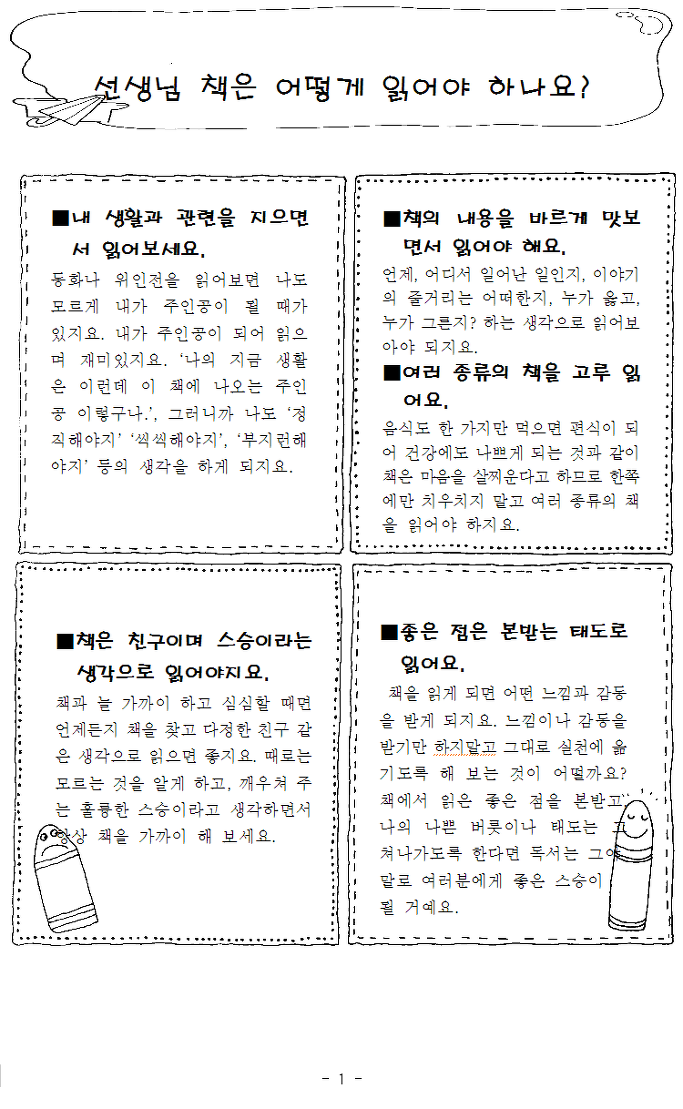 선생님 책은 어떻게 읽어야 하나요?
■내 생활과 관련을 지으면
서 읽어보세요.
동화나 위인전을 읽어보면 나도
모르게 내가 주인공이 될 때가
있지요. 내가 주인공이 되어 읽으
며 재미있지요. ‘나의 지금 생활
은 이런데 이 책에 나오는 주인
공 이렇구나.’, 그러니까 나도 ‘정
직해야지’ ‘씩씩해야지’, ‘부지런해
야지’ 등의 생각을 하게 되지요.
■책의 내용을 바르게 맛보
면서 읽어야 해요.
언제, 어디서 일어난 일인지, 이야기
의 줄거리는 어떠한지, 누가 옳고,
누가 그른지? 하는 생각으로 읽어보
아야 되지요.
■여러 종류의 책을 고루 읽
어요.
음식도 한 가지만 먹으면 편식이 되
어 건강에도 나쁘게 되는 것과 같이
책은 마음을 살찌운다고 하므로 한쪽
에만 치우치지 말고 여러 종류의 책
을 읽어야 하지요.
■책은 친구이며 스승이라는
생각으로 읽어야지요.
책과 늘 가까이 하고 심심할 때면
언제든지 책을 찾고 다정한 친구 같
은 생각으로 읽으면 좋지요. 때로는
모르는 것을 알게 하고, 깨우쳐 주
는 훌륭한 스승이라고 생각하면서
항상 책을 가까이 해 보세요.
■좋은 점은 본받는 태도로
읽어요.
책을 읽게 되면 어떤 느낌과 감동
을 받게 되지요. 느낌이나 감동을
받기만 하지말고 그대로 실천에 옮
기도록 해 보는 것이 어떨까요?
책에서 읽은 좋은 점을 본받고,
나의 나쁜 버릇이나 태도는 고
쳐나가도록 한다면 독서는 그야
말로 여러분에게 좋은 스승이
될 거예요.
- 1 -